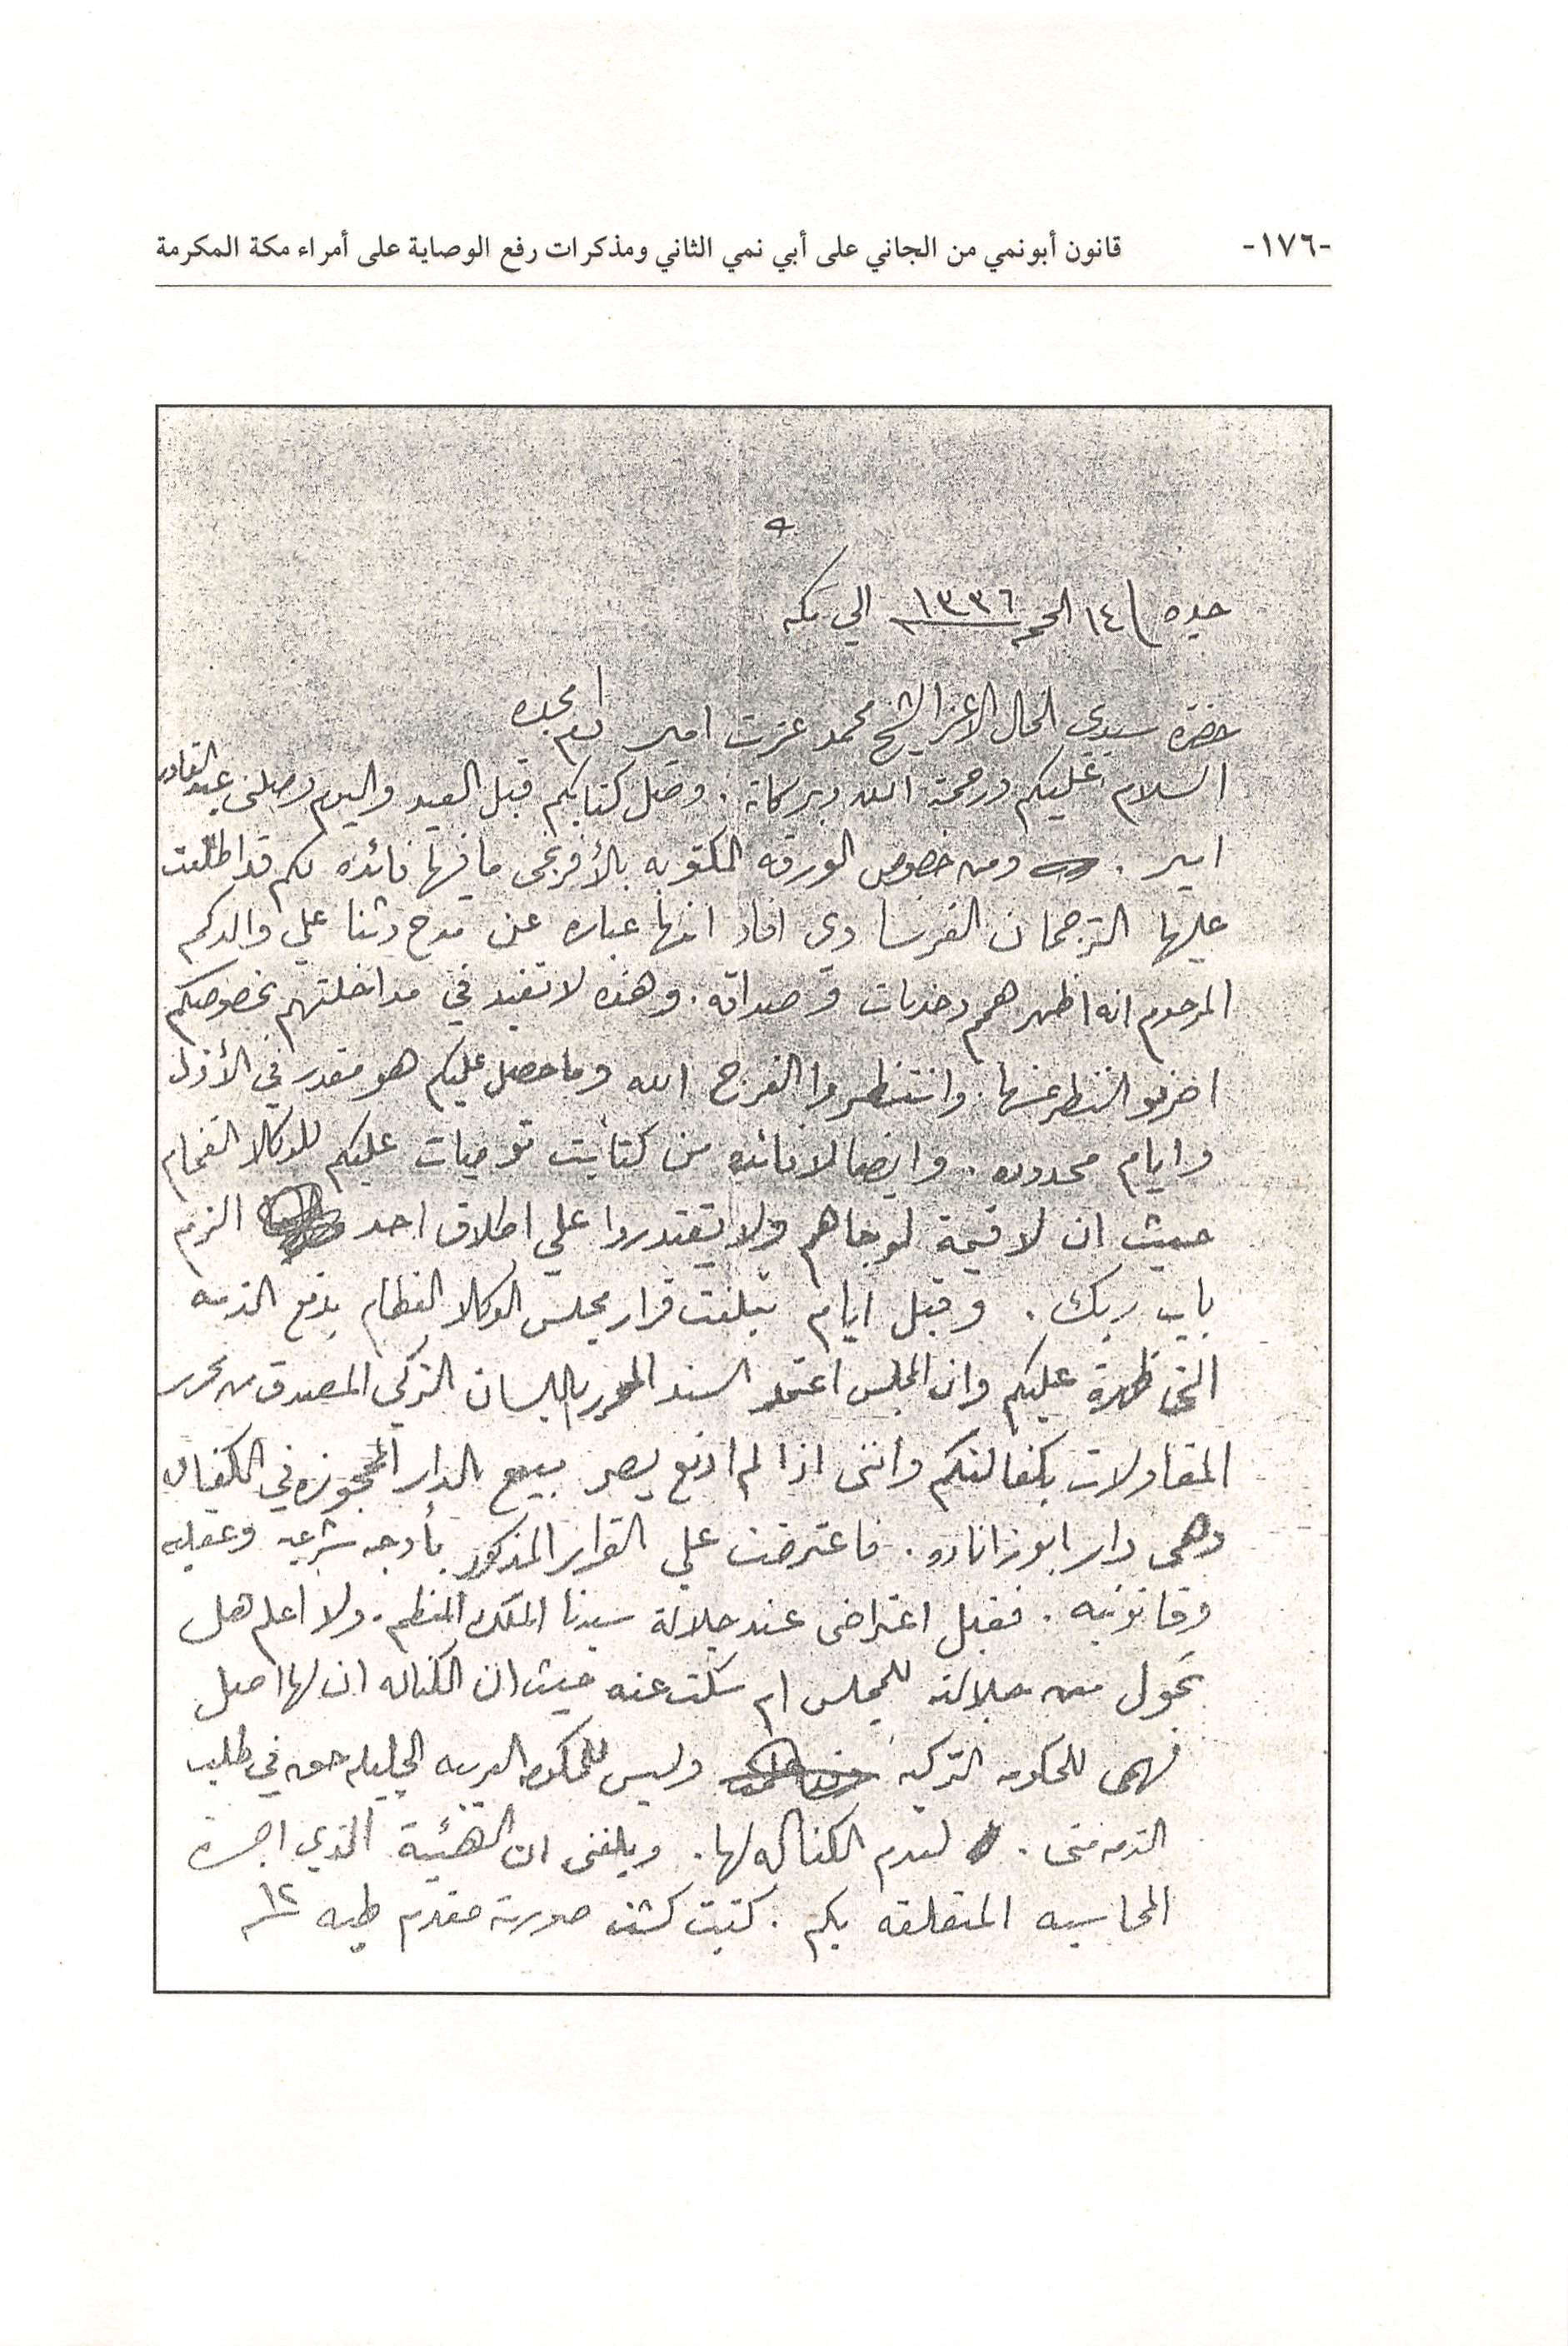 -١٧٦- قانون أبونمي من الجاني على أبي نمي الثاني ومذكرات رفع الوصاية على أمراء مكة المكرمة
جده ١٤ ١٣٣٦ الي مكه
حضرة سيدي الخال الاعز الشيخ محمد عزت امير دام مجده
السلام عليكم ورحمة الله وبركاته . وصل كتابكم قبل العيد واليوم وصلني عبد القادر
امير . ومن خصوص الورقه المكتوبه بالأفرنجي ما فيها فائده لكم قد اطلعت
عليها الترجمان الفرنساوي افاد انها عباره عن مدح وثنا علي والدكم
المرحوم انه اظهر همم وخدمات وصداقه . وهذه لا تفيد في مداخلتهم بخصوصكم
اضربو النظر عنها . وانتظروا الفرج الله وما حصل عليكم هو مقدر في الأزل
وايام محدوده . وايضا لا فائده من كتابت توصيات عليكم للوكلا الفخام
حيث ان لا قيمة لوجاهم ولا يقتدروا علي اطلاق احد الزم
باب ربك . وقبل ايام تبلغت قرار مجلس الوكلا الفخام بدفع الذمه
التى ظهرة عليكم وان المجلس اعتمد السند المحرر باللسان التركي المصدق من محرر
المقاولات بكفالتكم وانني اذا لم ادفع يصير مبيع الدار المحجوزه في الكفاله
وهى دار ابوزناده . فاعترضت علي القرار المذكور بأوجه شرعيه وعقليه
وقانونيه . فقبل اعتراضى عند جلالة سيدنا الملك المنظم . ولا اعلم هل
تحول من جلالته للمجلس ام سكت عنه حيث ان الكفاله ان لها اصل
فهى للحكومه التركيه وليس للحكومه العربيه الجليله حق في طلب
الذمه منى . لعدم الكفاله لها . وبلغنى ان الهئية الذي اجرة
المحاسبه المتعلقه بكم . كتبت كشف صورته مقدم طيه ١٢